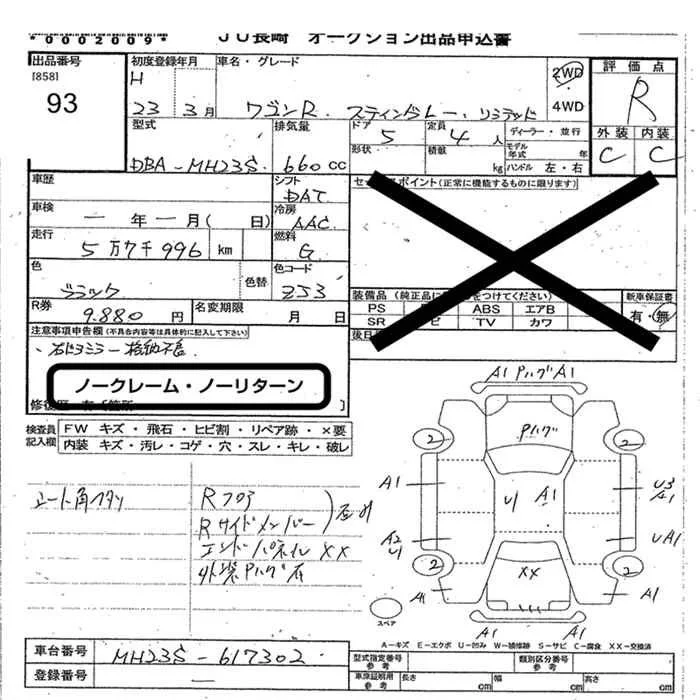 *0002009*
JU長崎 オークション出品申込書
出品番号
[858]
93
初度登録年月
H
23 3月
車名・グレード
ワゴンR. スティングレー. リミテッド
2WD
4WD
評価点
R
外装 内装
C C
型式
DBA-MH23S.
排気量
660 cc
ドア 5
形状
定員 4人
積載 kg
ディーラー・並行
モデル年式 年
ハンドル 左・右
車歴
シフト DAT
車検
一 年 一 月( 日)
冷房 AAC
走行
5万7千996 km
燃料 G
色
ブラック
色替
色コード
Z53
R券
9.880 円
名変期限
月 日
セールスポイント(正常に機能するものに限ります)
装備品
PS ABS エアB
SR TV カワ
新車保証書
有・無
注意事項申告欄(不具合内容等は具体的に記入して下さい)
・右ドアミラー格納不良
ノークレーム・ノーリターン
検査員記入欄
FW キズ・飛石・ヒビ割・リペア跡・×要
内装 キズ・汚レ・コゲ・穴・スレ・キレ・破レ
Rフロア
Rサイドメンバー
エンドパネルXX
A1 Pハゲ A1
Pハゲ
2 2
A1 U1 A1 U3 A1
A2 U1 UA1
2 XX 2
A1 A1
A1 A1
スペア
A-キズ E-エクボ U-凹み W-補修跡 S-サビ C-腐食 XX-交換済
車台番号
MH23S-617302
登録番号
一
型式指定番号 参考
類別区分番号 参考
車庫証明用 参考
長さ cm
幅 cm
高さ cm